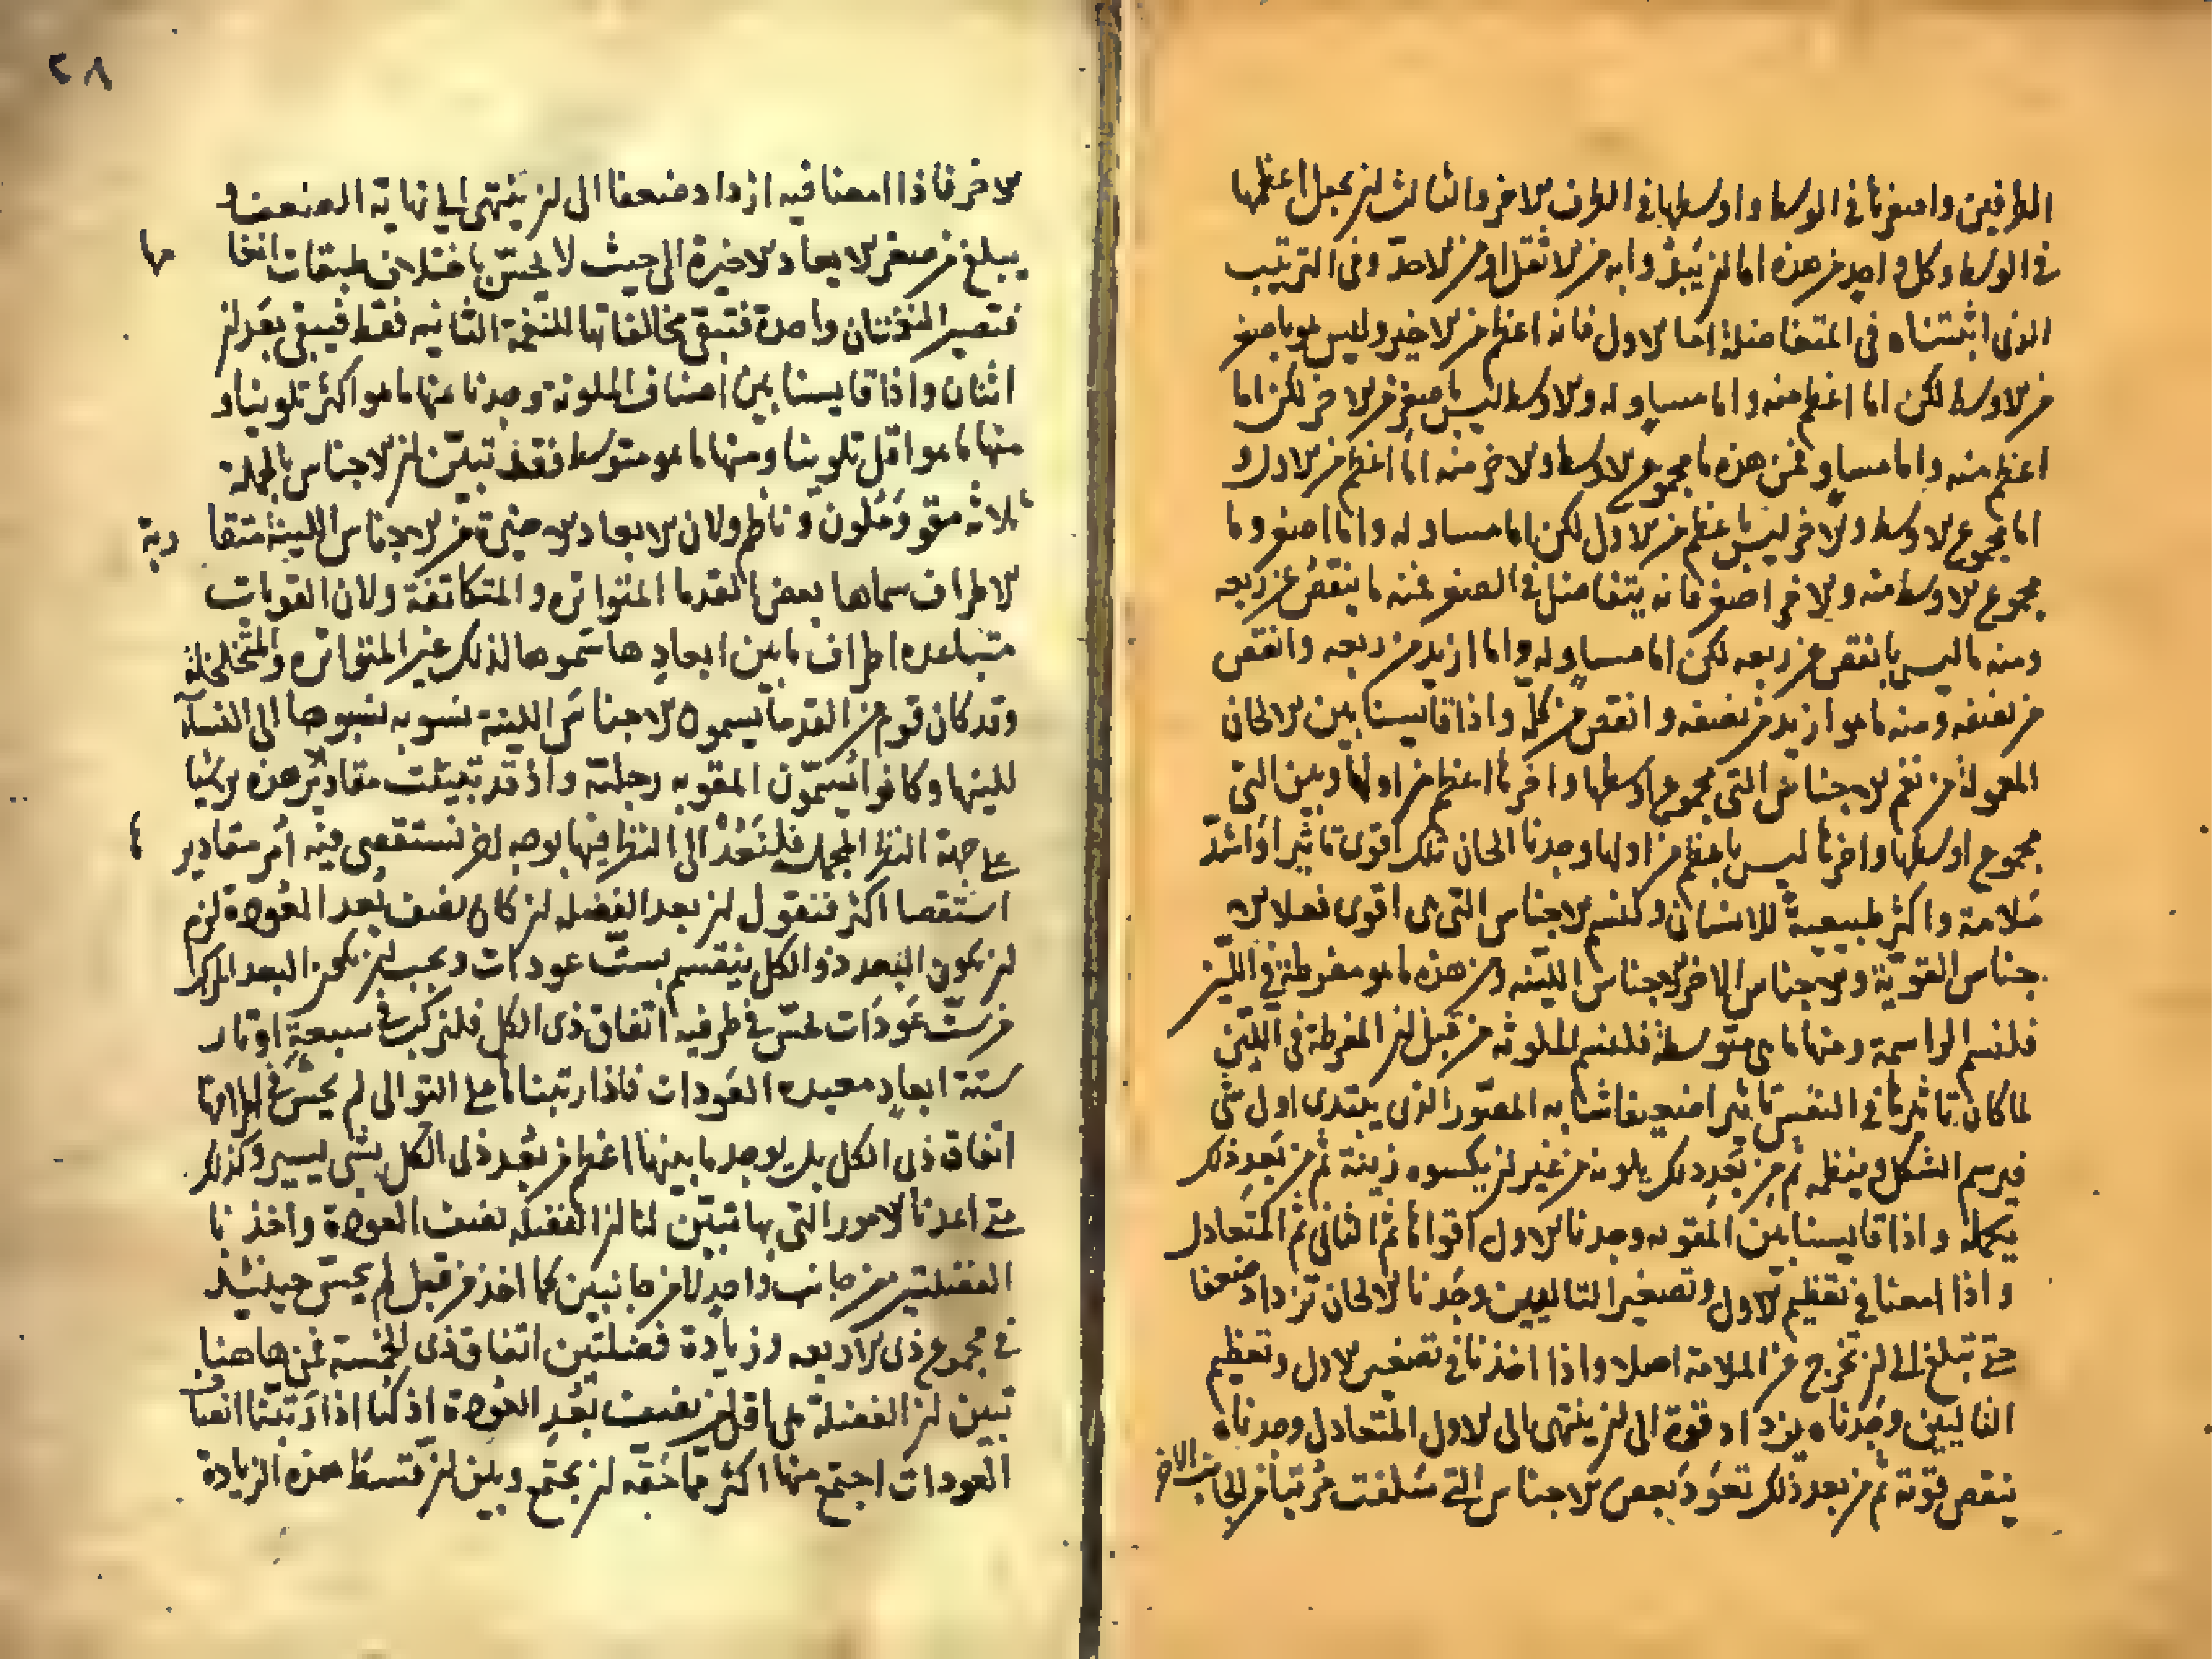 الطرفين واصغرها في الوسط واوسطها في الطرف الاخر والثالث ان يجعل اعظمها
في الوسط وكل واحد من هذه اما ان يبتدأ به من الاثقل او من الاحد وفي الترتيب
الذي اثبتناه في المتفاضلة اما الاول فانه اعظم من الاخير وليس هو باصغر
من الاوسط لكن اما اعظم منه واما مساو له والاوسط ليس باصغر من الاخر لكن اما
اعظم منه واما مساو فمن هذه ما مجموع الاوسط والاخر منه اما اعظم من الاول و
اما مجموع الاوسط والاخر ليس باعظم من الاول لكن اما مساو له واما اصغر وما
مجموع الاوسط منه والاخر اصغر فانه يتفاضل في الصغر فمنه ما ينقص عن ربعه
ومنه ما ليس بانقص من ربعه لكن اما مساو له واما ازيد من ربعه وانقص
من نصفه ومنه ما هو ازيد من نصفه وانقص من كله واذا قايسنا بين الالحان
المعمولة من نغم الاجناس التي مجموع اوسطها واخرها اعظم من اولها وبين التي
مجموع اوسطها واخرها ليس باعظم من اولها وجدنا الحان تلك اقوى تاثيرا واشد
ملامة واكثر طبيعية للانسان ولنسم الاجناس التي هي اقوى فعلا الا
جناس القوية والاجناس الاخر الاجناس اللينه ومن هذه ما هو مفرطة في اللين
فلنسم الراسمة ومنها ما هي متوسطة فلنسم الملونه من قبل ان المفرطة في اللين
لما كان تاثيرها في النفس تاثيرا ضعيفا شابه المصور الذي يبتدى اول شي
فيرسم الشكل وينظمه ثم من بعد ذلك يلونه من غير ان يكسوه زينة ثم من بعد ذلك
يكمله واذا قايسنا بين المقويه وجدنا الاول اقواها ثم الثاني ثم المتعادل
واذا امعنا في تعظيم الاول وتصغير التاليين وجدنا الالحان تزداد ضعفا
حتى تبلغ الى ان تخرج عن الملامة اصلا واذا اخذنا في تصغير الاول وتعظيم
التاليين وجدناه يزداد قوة الى ان ينتهى الى الاول المتعادل وجدناه
ينقص قوته ثم من بعد ذلك تعود بعض الاجناس التي سلفت مرتبا من الجانب الاخر
٢٨
الاخر فاذا امعنا فيه ازداد ضعفا الى ان ينتهى الى نهاية الضعف و
يبلغ من صغر الابعاد الاخيرة الى حيث لا يحس باختلاف طبقات انغامها
فتصير النغمتان واحدة فتبقى مخالفاتها للنغمة الثانيه فقط فيبقى بعدان
اثنان واذا قايسنا بين اصناف الملونة وجدنا منها ما هو اكثر تلوينا و
منها ما هو اقل تلوينا ومنها ما هو متوسط فقد تبين ان الاجناس بالجملة
ثلاثه مقو وملون وناظم ولان الابعاد الاخيرة من الاجناس اللينة متقاربة
الاطراف سماها بعض القدما المتواتره والمتكاثفة ولان القويات
متباعده اطراف ما بين ابعادها سموها لذلك غير المتواتره والمتخلخلة
وقد كان قوم من القدما يسمون الاجناس اللينة نسويه نسبوها الى النسآء
للينها وكانوا يسمون المقويه رجلية واذ قد تبينت مقادير هذه الاشيا
على جهة النظر المجمل فلنعد الى النظر فيها بوجه اخر نستقصى فيه أمر مقاديرها
استقصا اكثر فنقول ان بعد الفضله ان كان نصف بعد العودة لزم
ان يكون البعد ذو الكل ينقسم بست عودات ويجب ان يكون البعد المركب
من ست عودات يحس في طرفيه اتفاق ذي الكل فلنركب في سبعة اوتار
ستة ابعاد معيده العودات فاذا رتبناها على التوالى لم يحس في اطرافها
اتفاق ذي الكل بل يوجد ما بينها اعظم من بعد ذى الكل بشى يسير وكذلك
متى اعدنا الامور التي بها تبين لنا ان الفضلة نصف العودة واخذنا
الفضلتين من جانب واحد لا من جانبين كما اخذ من قبل لم يحس حينئذ
في مجموع ذي الاربعه وزيادة فضلتين اتفاق ذى الخمسة فمن هاهنا
تبين ان الفضلة هي اقل من نصف بعد العودة اذ كنا اذا رتبنا انصاف
العودات اجتمع منها اكثر مما حقه ان يجتمع وبين ان قسط هذه الزيادة